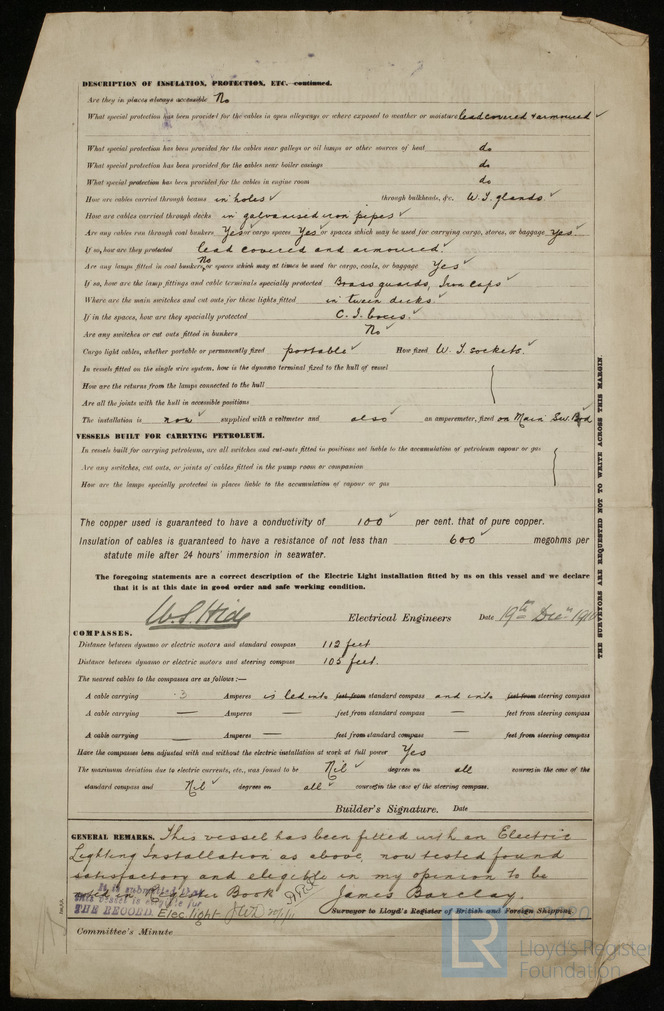 DESCRIPTION OF INSULATION, PROTECTION, ETC. continued.
Are they in places always accessible No
What special protection has been provided for the cables in open alleyways or where exposed to weather or moisture lead covered & armoured ✓
What special protection has been provided for the cables near galleys or oil lamps or other sources of heat do
What special protection has been provided for the cables near boiler casings do
What special protection has been provided for the cables in engine room do
How are cables carried through beams in holes ✓ through bulkheads, &c. W.T. glands ✓
How are cables carried through decks in galvanised iron pipes ✓
Are any cables run through coal bunkers Yes or cargo spaces Yes ✓ or spaces which may be used for carrying cargo, stores, or baggage Yes ✓
If so, how are they protected lead covered and armoured. ✓
Are any lamps fitted in coal bunkers No or spaces which may at times be used for cargo, coals, or baggage Yes ✓
If so, how are the lamp fittings and cable terminals specially protected Brass guards, Iron Caps ✓
Where are the main switches and cut outs for these lights fitted in tween decks ✓
If in the spaces, how are they specially protected C. I. boxes. ✓
Are any switches or cut outs fitted in bunkers No ✓
Cargo light cables, whether portable or permanently fixed portable ✓ How fixed W. T. sockets. ✓
In vessels fitted on the single wire system, how is the dynamo terminal fixed to the hull of vessel
How are the returns from the lamps connected to the hull
Are all the joints with the hull in accessible positions
The installation is now ✓ supplied with a voltmeter and also ✓ an amperemeter, fixed on Main Sw. Bod
VESSELS BUILT FOR CARRYING PETROLEUM.
In vessels built for carrying petroleum, are all switches and cut-outs fitted in positions not liable to the accumulation of petroleum vapour or gas
Are any switches, cut outs, or joints of cables fitted in the pump room or companion
How are the lamps specially protected in places liable to the accumulation of vapour or gas
The copper used is guaranteed to have a conductivity of 100 ✓ per cent. that of pure copper.
Insulation of cables is guaranteed to have a resistance of not less than 600 ✓ megohms per
statute mile after 24 hours' immersion in seawater.
The foregoing statements are a correct description of the Electric Light installation fitted by us on this vessel and we declare
that it is at this date in good order and safe working condition.
Electrical Engineers Date 19th Dec
COMPASSES.
Distance between dynamo or electric motors and standard compass 112 feet
Distance between dynamo or electric motors and steering compass 105 feet.
The nearest cables to the compasses are as follows:—
A cable carrying .3 Amperes is led into feet from standard compass and into feet from steering compass
A cable carrying — Amperes — feet from standard compass — feet from steering compass
A cable carrying — Amperes — feet from standard compass — feet from steering compass
Have the compasses been adjusted with and without the electric installation at work at full power Yes
The maximum deviation due to electric currents, etc., was found to be Nil ✓ degrees on all courses in the case of the
standard compass and Nil ✓ degrees on all ✓ courses in the case of the steering compass.
Builder's Signature. Date
GENERAL REMARKS. This vessel has been fitted with an Electric
Lighting Installation as above, now tested found
satisfactory and eligible in my opinion to be
in Register Book James Barclay.
It is submitted that
this vessel is eligible for
THE RECORD. Elec. light
Surveyor to Lloyd's Register of British and Foreign Shipping.
Committee's Minute
THE SURVEYORS ARE REQUESTED NOT TO WRITE ACROSS THIS MARGIN
LR
© 2020
Lloyd's Register
Foundation